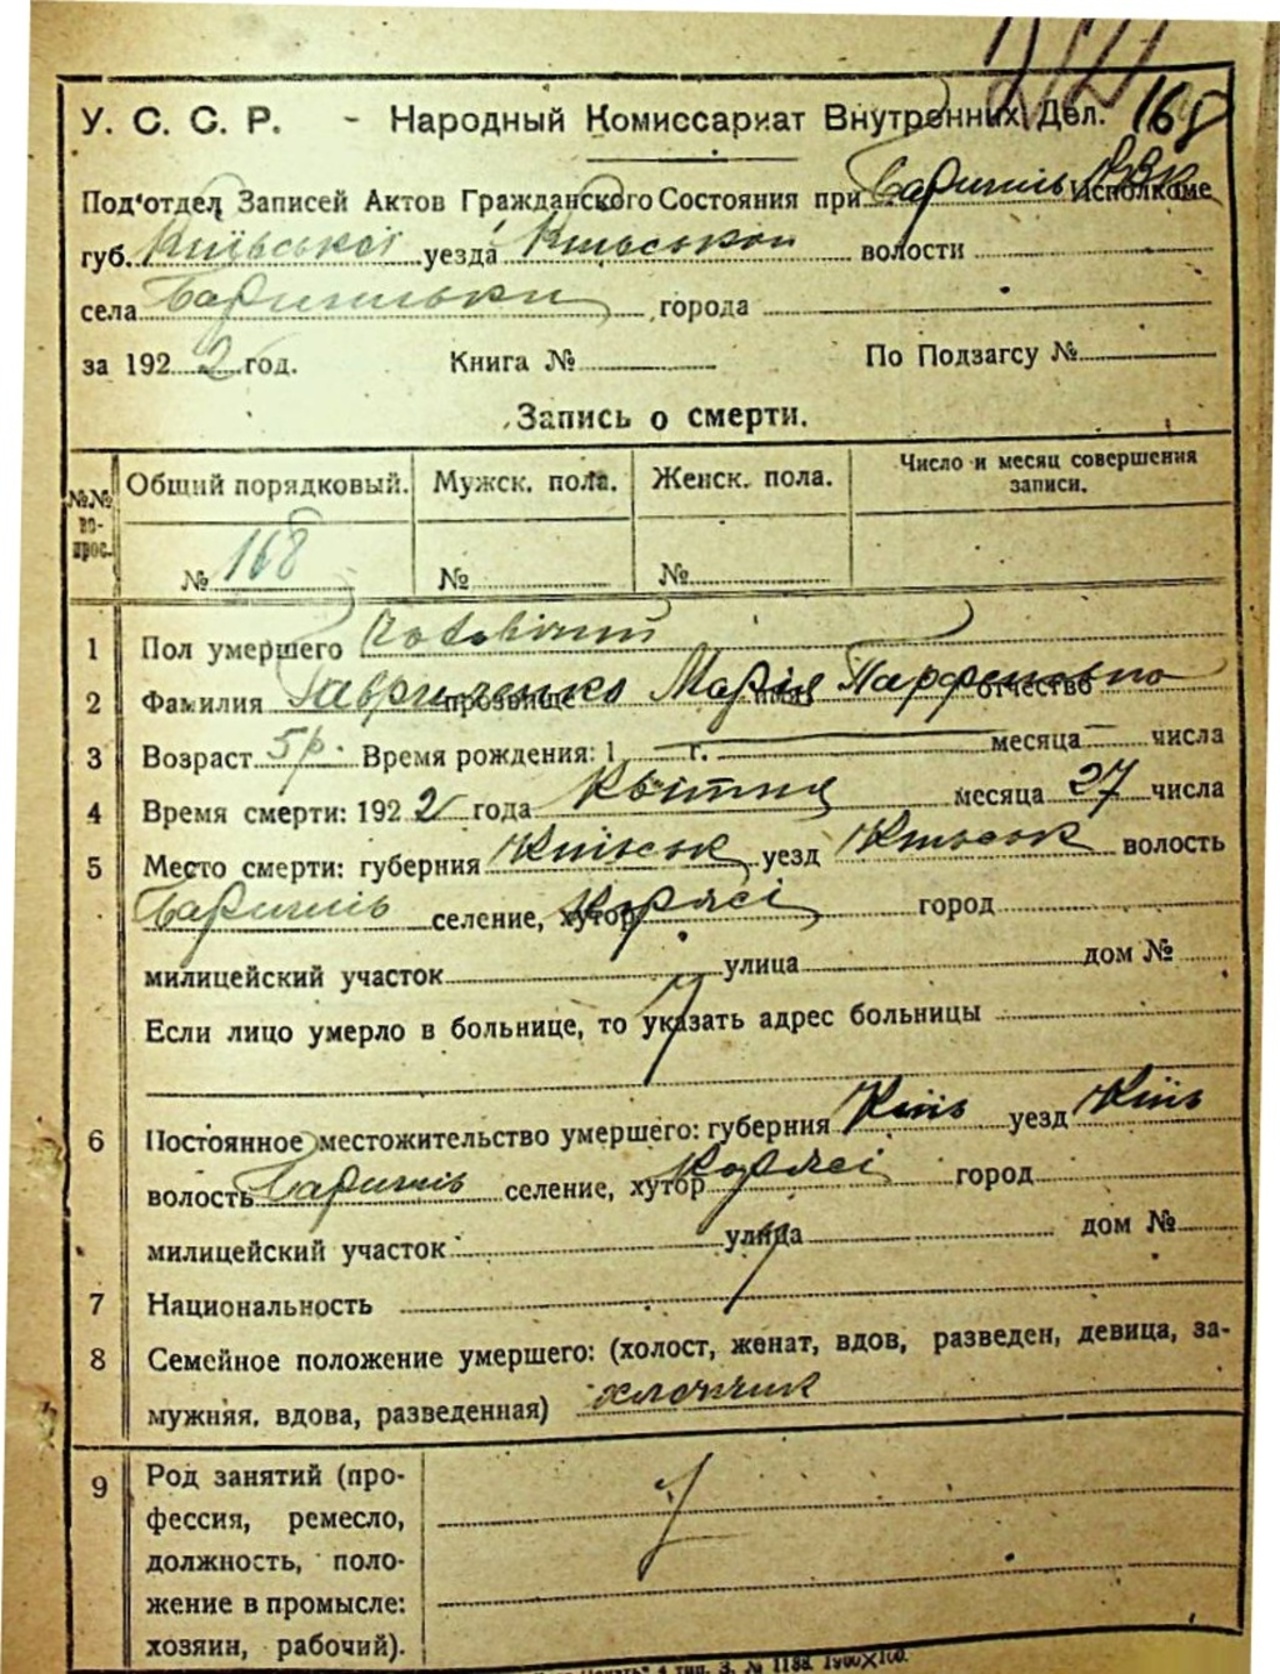 168
У. С. С. Р. - Народный Комиссариат Внутренних Дел.
Под'отдел Записей Актов Гражданского Состояния при Баришів РВК Исполкоме
губ. Київської уезда Київської волости
села Баришівки города
за 1922 год. Книга № По Подзагсу №
Запись о смерти.
№№ вопрос. Общий порядковый. Мужск. пола. Женск. пола. Число и месяц совершения записи.
№ 168 № №
1 Пол умершего
2 Фамилия Гавриленко прозвище Марія имя Парфеновна отчество
3 Возраст 5 р. Время рождения: 1 г. месяца числа
4 Время смерти: 1922 года Квітня месяца 27 числа
5 Место смерти: губерния Київськ уезд Київськ волость
Баришів селение, хутор Коржі город
милицейский участок улица дом №
Если лицо умерло в больнице, то указать адрес больницы
6 Постоянное местожительство умершего: губерния Київ уезд Київ
волость Баришів селение, хутор Коржі город
милицейский участок улица дом №
7 Национальность
8 Семейное положение умершего: (холост, женат, вдов, разведен, девица, за-
мужняя, вдова, разведенная) хлопчик
9 Род занятий (про-
фессия, ремесло,
должность, поло-
жение в промысле:
хозяин, рабочий).
тип. З. № 1188. 1900×100.